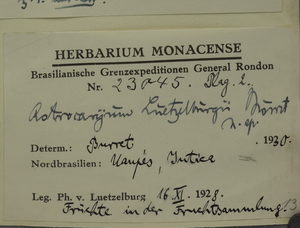 HERBARIUM MONACENSE
Brasilianische Grenzexpeditionen General Rondon
Nr. 23045.
Astrocaryum Luetzelburgii Burret
n. sp.
Determ.: Burret 1930.
Nordbrasilien: Uaupés, Jutica
Leg. Ph. v. Luetzelburg 16. XI. 1928.
Früchte in der Fruchtsammlung!